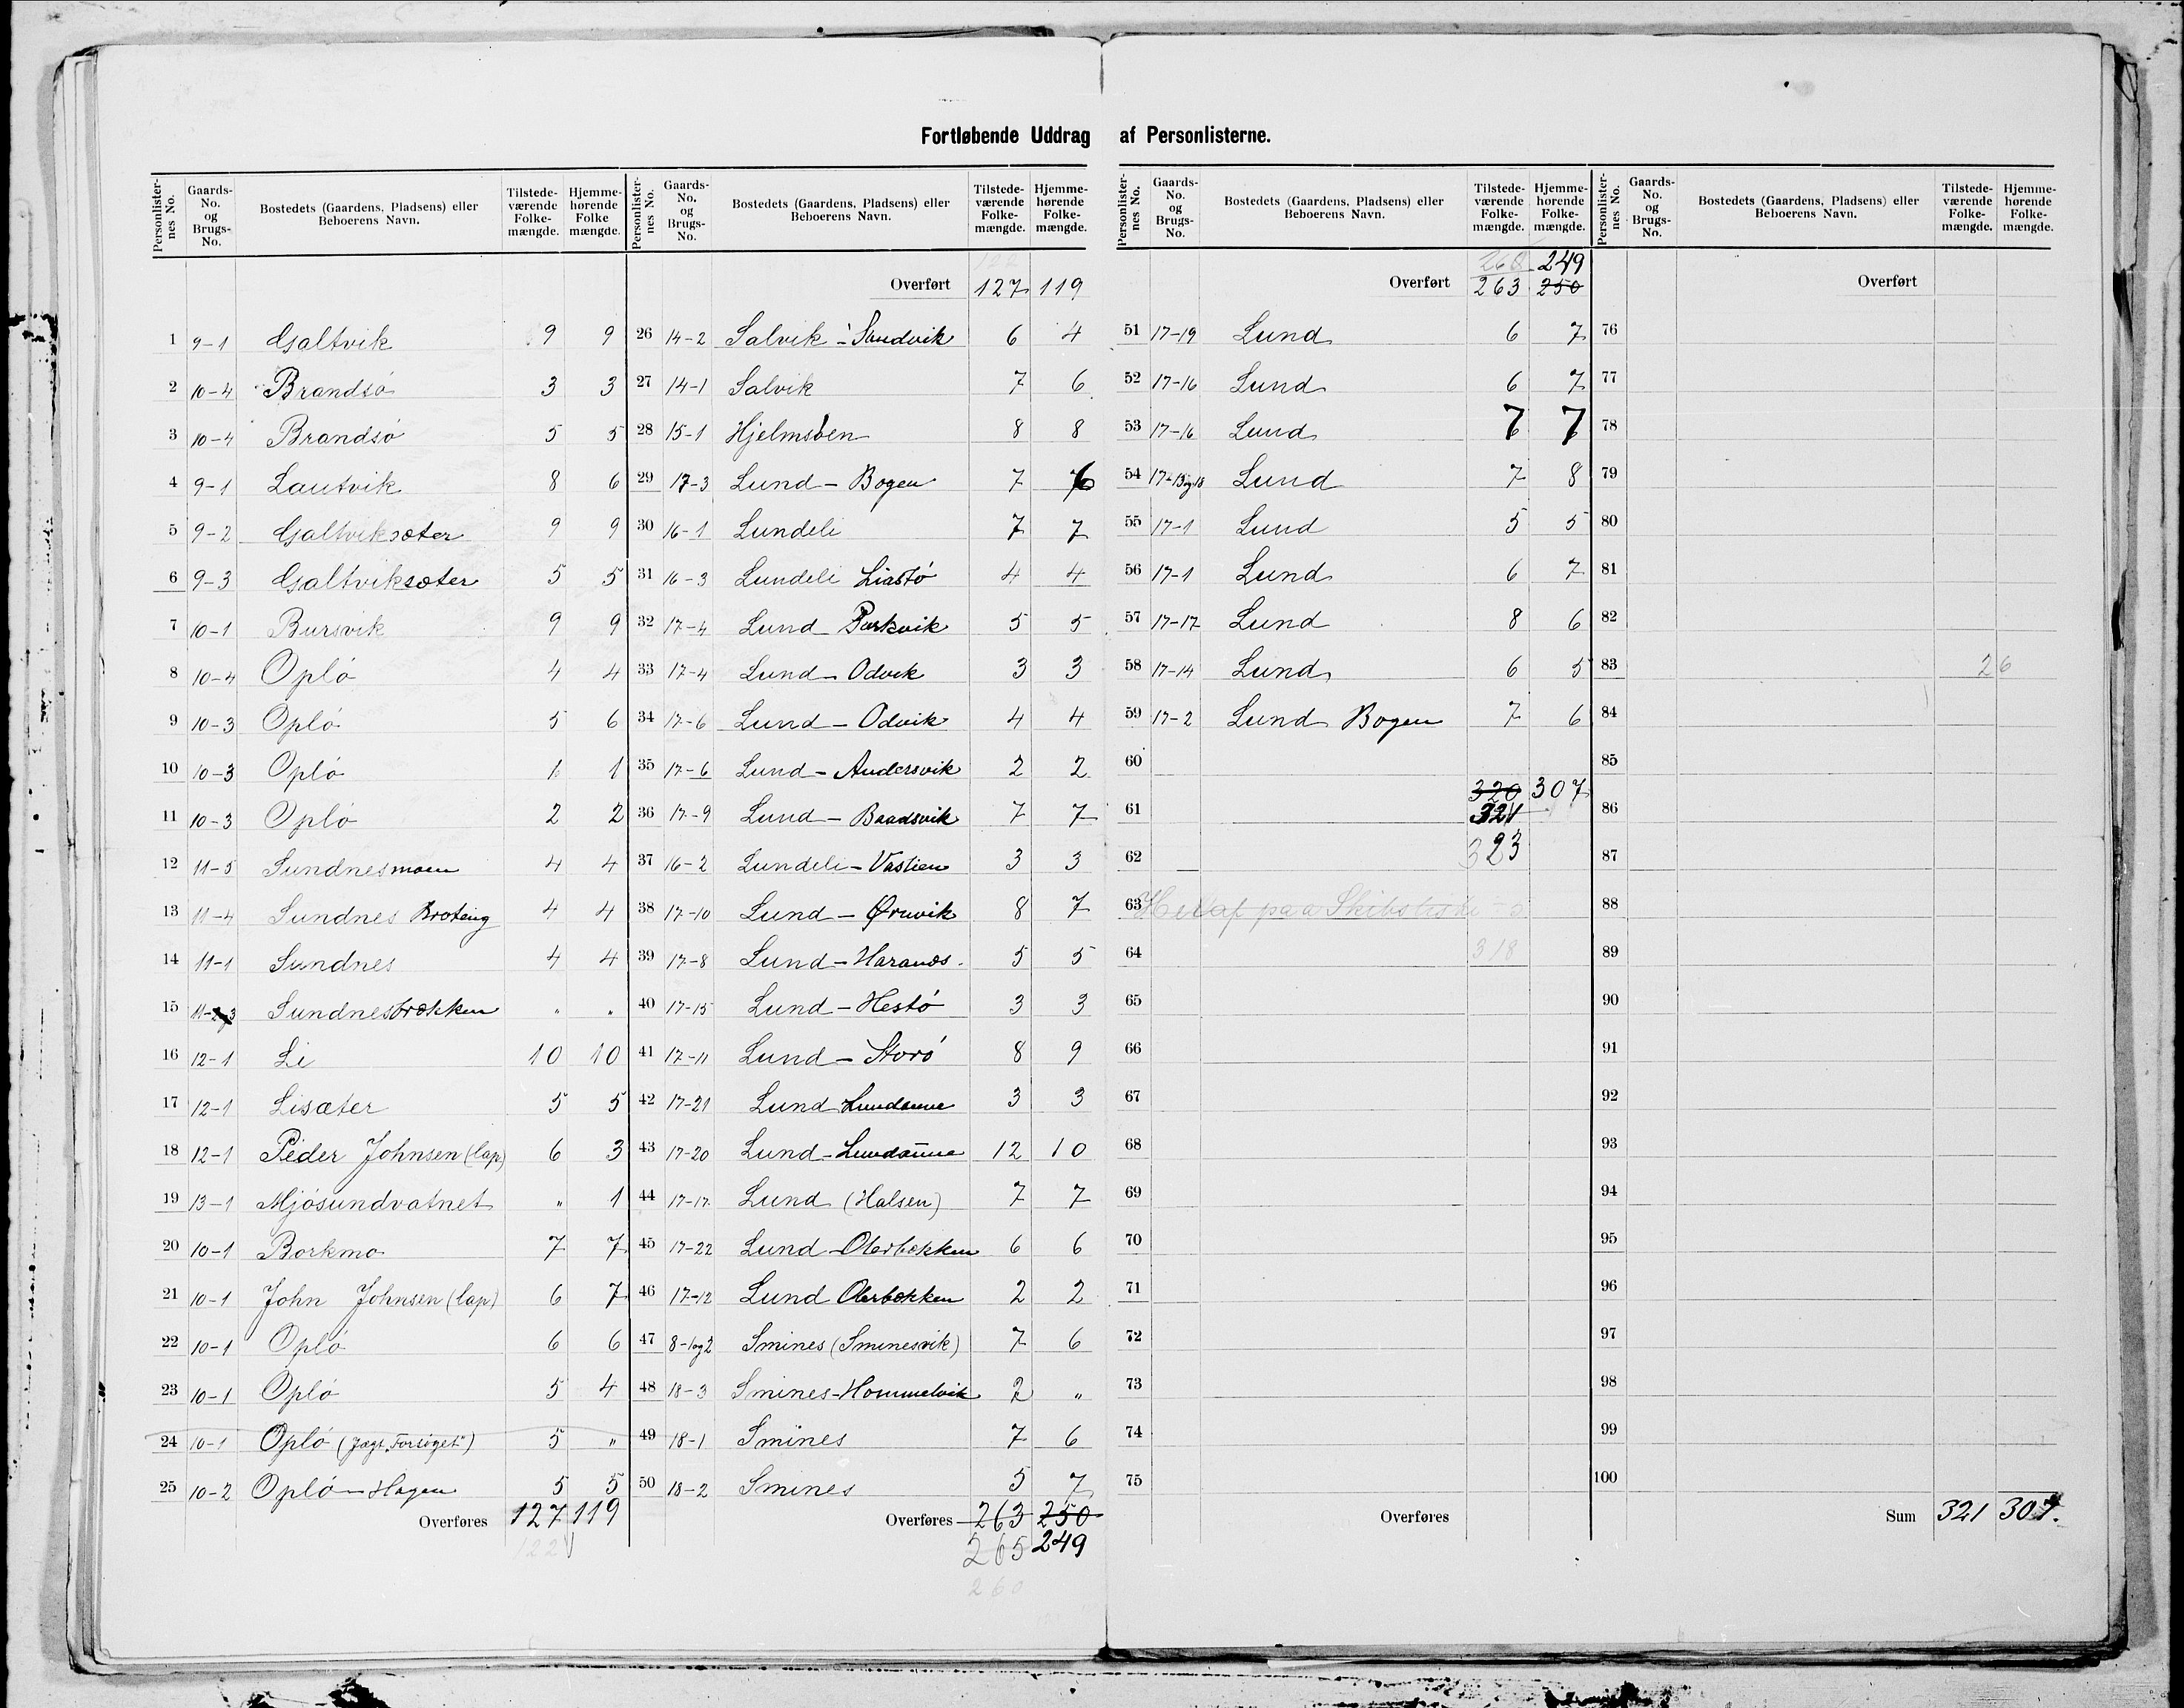 Fortløbende Uddrag af Personlisterne.
Personlisternes No. Gaards-No. og Brugs-No. Bostedets (Gaardens, Pladsens) eller Beboerens Navn. Tilstedeværende Folkemængde. Hjemmehørende Folke mængde.
1 9-1 Galtvik 9 9
2 10-4 Brandsø 3 3
3 10-4 Brandsø 5 5
4 9-1 Lautvik 8 6
5 9-2 Galtviksæter 9 9
6 9-3 Galtviksæter 5 5
7 10-1 Bursvik 9 9
8 10-4 Oplø 4 4
9 10-3 Oplø 5 6
10 10-3 Oplø 1 1
11 10-3 Oplø 2 2
12 11-5 Sundnesmoen 4 4
13 11-4 Sundnes Broteng 4 4
14 11-1 Sundnes 4 4
15 Sundnesbrækken " "
16 12-1 Li 10 10
17 12-1 Lisæter 5 5
18 12-1 Peder Johnsen (lap) 6 3
19 13-1 Mjøsundvatnet " 1
20 10-1 Borkmo 7 7
21 10-1 John Johnsen (lap) 6 7
22 10-1 Oplø 6 6
23 10-1 Oplø 5 4
24 10-1 Oplø (Jægt „Forsøget") 5 "
25 10-2 Oplø-Hagen 5 5
Overføres 127 119
122
Personlisternes No. Gaards-No. og Brugs-No. Bostedets (Gaardens, Pladsens) eller Beboerens Navn. Tilstedeværende Folkemængde. Hjemmehørende Folkemængde.
122
Overført 127 119
26 14-2 Salvik - Sandvik 6 4
27 14-1 Salvik 7 6
28 15-1 Hjelmsøen 8 8
29 17-3 Lund - Bogen 7 6
30 16-1 Lundeli 7 7
31 16-3 Lundeli Liastø 4 4
32 17-4 Lund Purkvik 5 5
33 17-4 Lund - Odvik 3 3
34 17-6 Lund - Odvik 4 4
35 17-6 Lund - Andersvik 2 2
36 17-9 Lund - Baadsvik 7 7
37 16-2 Lundeli - Vastien 3 3
38 17-10 Lund - Ørnvik 8 7
39 17-8 Lund - Haranes 5 5
40 17-15 Lund - Hestø 3 3
41 17-11 Lund - Storø 8 9
42 17-21 Lund Lundamo 3 3
43 17-20 Lund - 12 10
44 17-17 Lund (Halsen) 7 7
45 17-22 Lund - Oterbækken 6 6
46 17-12 Lund Oterbækken 2 2
47 8-1og2 Smines (Sminesvik) 7 6
48 18-3 Smines-Hommelvik 2 "
49 18-1 Smines 7 6
50 18-2 Smines 5 7
Overføres 263 250
265 249
260
Personlisternes No. Gaards-No. og Brugs-No. Bostedets (Gaardens, Pladsens) eller Beboerens Navn. Tilstedeværende Folkemængde. Hjemmehørende Folkemængde.
260 249
Overført 263 250
51 17-19 Lund 6 7
52 17-16 Lund 6 7
53 17-16 Lund 7 7
54 17-13og18 Lund 7 8
55 17-1 Lund 5 5
56 17-1 Lund 6 7
57 17-17 Lund 8 6
58 17-14 Lund 6 5
59 17-2 Lund Bogen 7 6
60
320 307
61 321
62 323
63 Heraf paa Skibsliste
64 318
65
66
67
68
69
70
71
72
73
74
75
Overføres
Personlisternes No. Gaards-No. og Brugs-No. Bostedets (Gaardens, Pladsens) eller Beboerens Navn. Tilstedeværende Folkemængde. Hjemmehørende Folkemængde.
Overført
76
77
78
79
80
81
82
83 26
84
85
86
87
88
89
90
91
92
93
94
95
96
97
98
99
100
Sum 321 307.